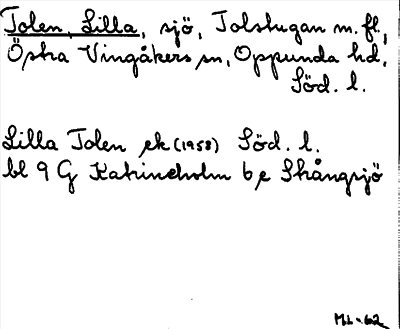 Tolen, Lilla, sjö, Tolstugan m.fl,
Östra Vingåkers sn, Oppunda hd,
Söd. l.
Lilla Tolen ek (1958) Söd. l.
bl 9 G Katrineholm 6 e Skångsjö
ML-62